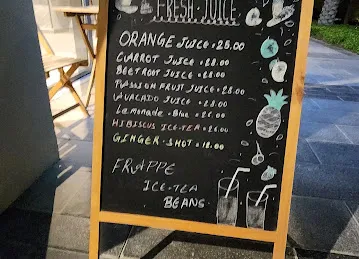 FRESH JUICE
ORANGE JUICE • 25.00
CARROT JUICE • 28.00
BEETROOT JUICE • 28.00
PASSION FRUIT JUICE • 28.00
AVACADO JUICE • 28.00
Lemonade - Blue • 26.00
HIBISCUS ICE-TEA • 26.00
GINGER - SHOT • 18.00
FRAPPE
ICE-TEA
BEANS